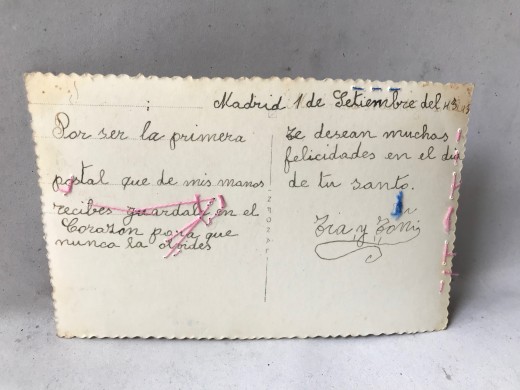 Madrid 1 de Setiembre del
Por ser la primera
postal que de mis manos
recibes guardala en el
Corazón para que
nunca la olvides
te desean muchas
felicidades en el dia
de tu santo.
Tia y Toni